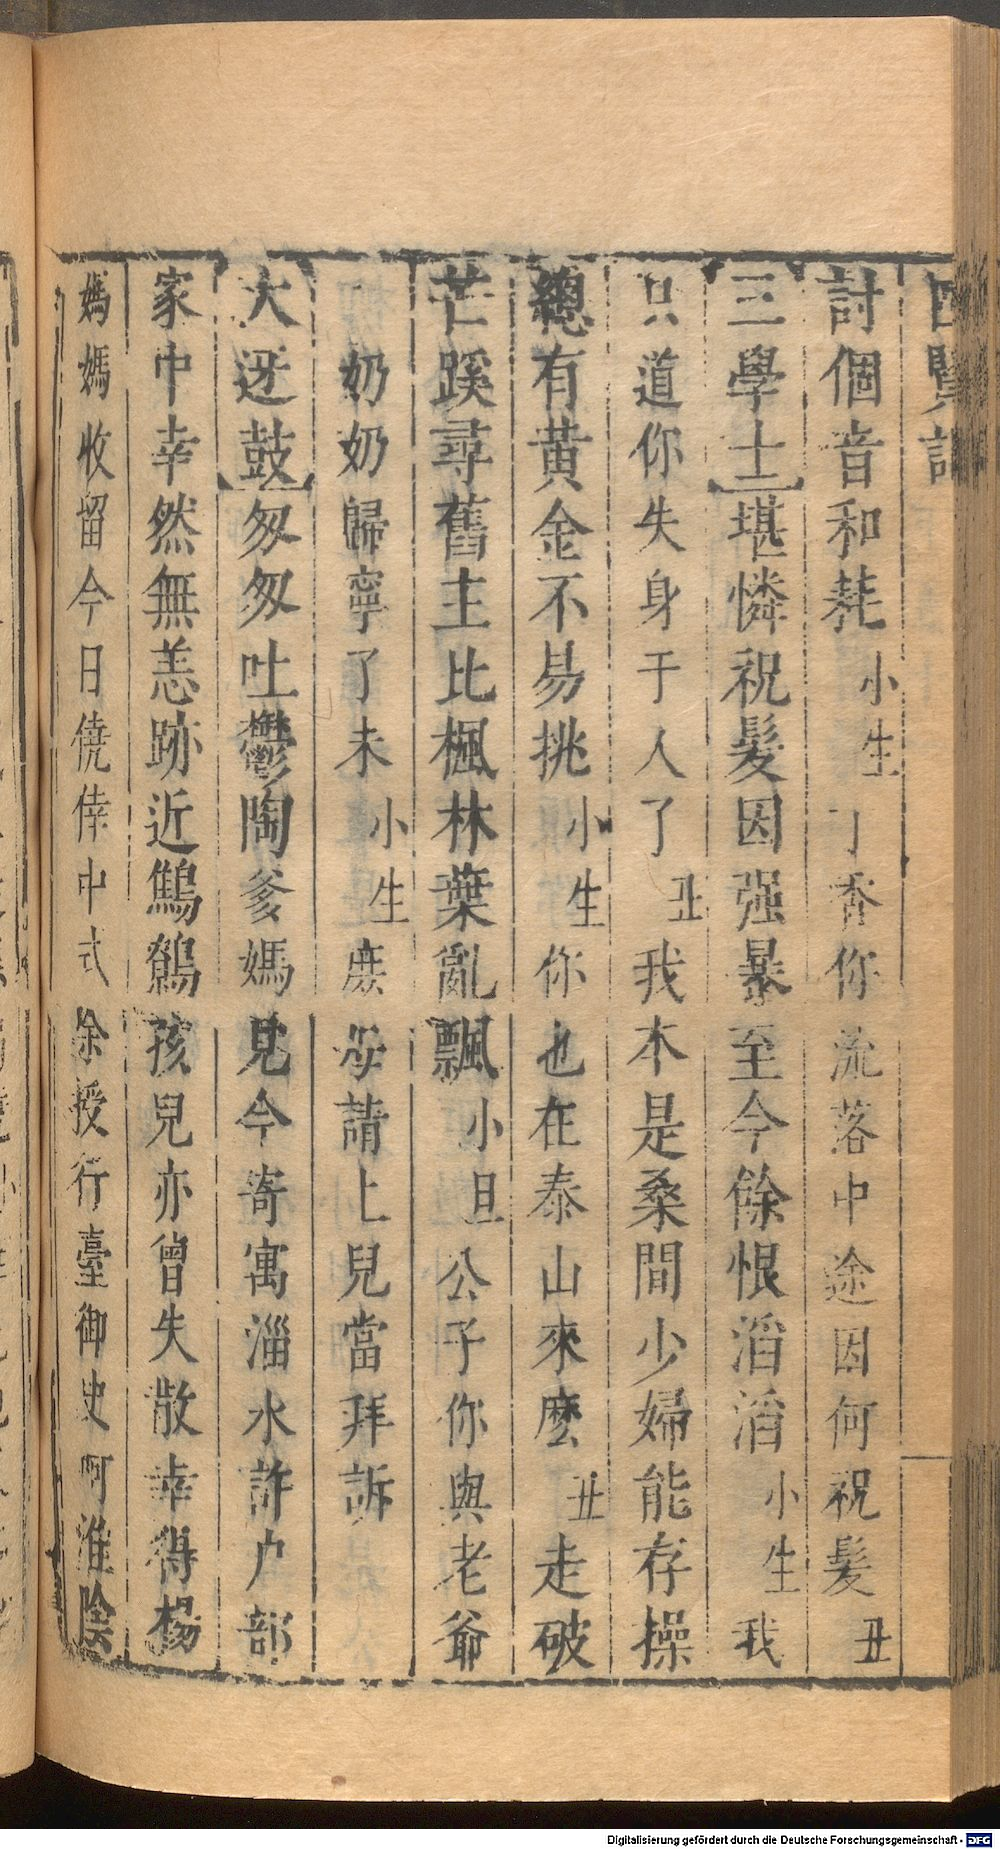 討個音和耗小生丁香你流落中途因何祝髮丑
三學士堪憐祝髮因强暴至今餘恨滔滔小生我
只道你失身于人了丑我本是桑間少婦能存操
總有黃金不易挑小生你也在泰山來麽丑走破
芒蹊尋舊主比楓林葉亂飄小旦公子你與老爺
奶奶歸寧了未小生庶母請上兒當拜訴
大迓鼓匆匆吐鬱陶爹媽見今寄寓淄水許户部
家中幸然無恙跡近鷦鷯孩兒亦曾失散幸得楊
媽媽收留今日僥倖中式除授行臺御史阿淮陰
Digitalisierung gefördert durch die Deutsche Forschungsgemeinschaft - DFG